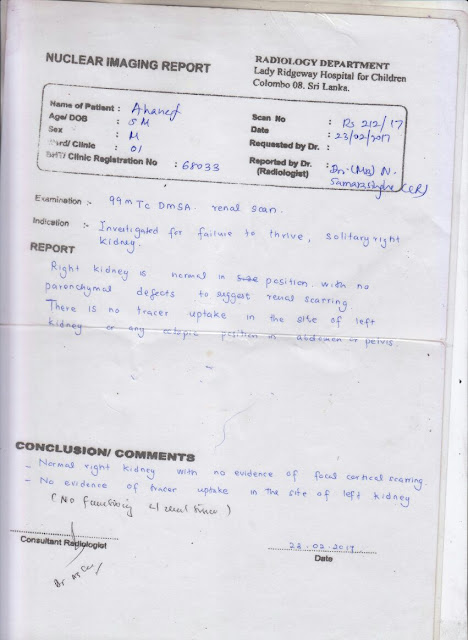 NUCLEAR IMAGING REPORT
RADIOLOGY DEPARTMENT
Lady Ridgeway Hospital for Children
Colombo 08. Sri Lanka.
Name of Patient : Ahanef
Age/ DOB : 5 M
Sex : M
Ward/ Clinic : 01
BHT/ Clinic Registration No : 68033
Scan No : Rs 212/17
Date : 23/02/2017
Requested by Dr. :
Reported by Dr. : Dr. (Mrs) N.
(Radiologist) (SR)
Examination :- 99m Tc DMSA. renal scan.
Indication :- Investigated for failure to thrive, solitary right
kidney.
REPORT
Right kidney is normal in position with no
parenchymal defects to suggest renal scarring.
There is no tracer uptake in the site of left
kidney or any ectopic position in abdomen or pelvis
CONCLUSION/ COMMENTS
- Normal right kidney with no evidence of focal cortical scarring.
- No evidence of tracer uptake in the site of left kidney
(No functioning renal tissue)
Consultant Radiologist
23.02.2017
Date
Dr